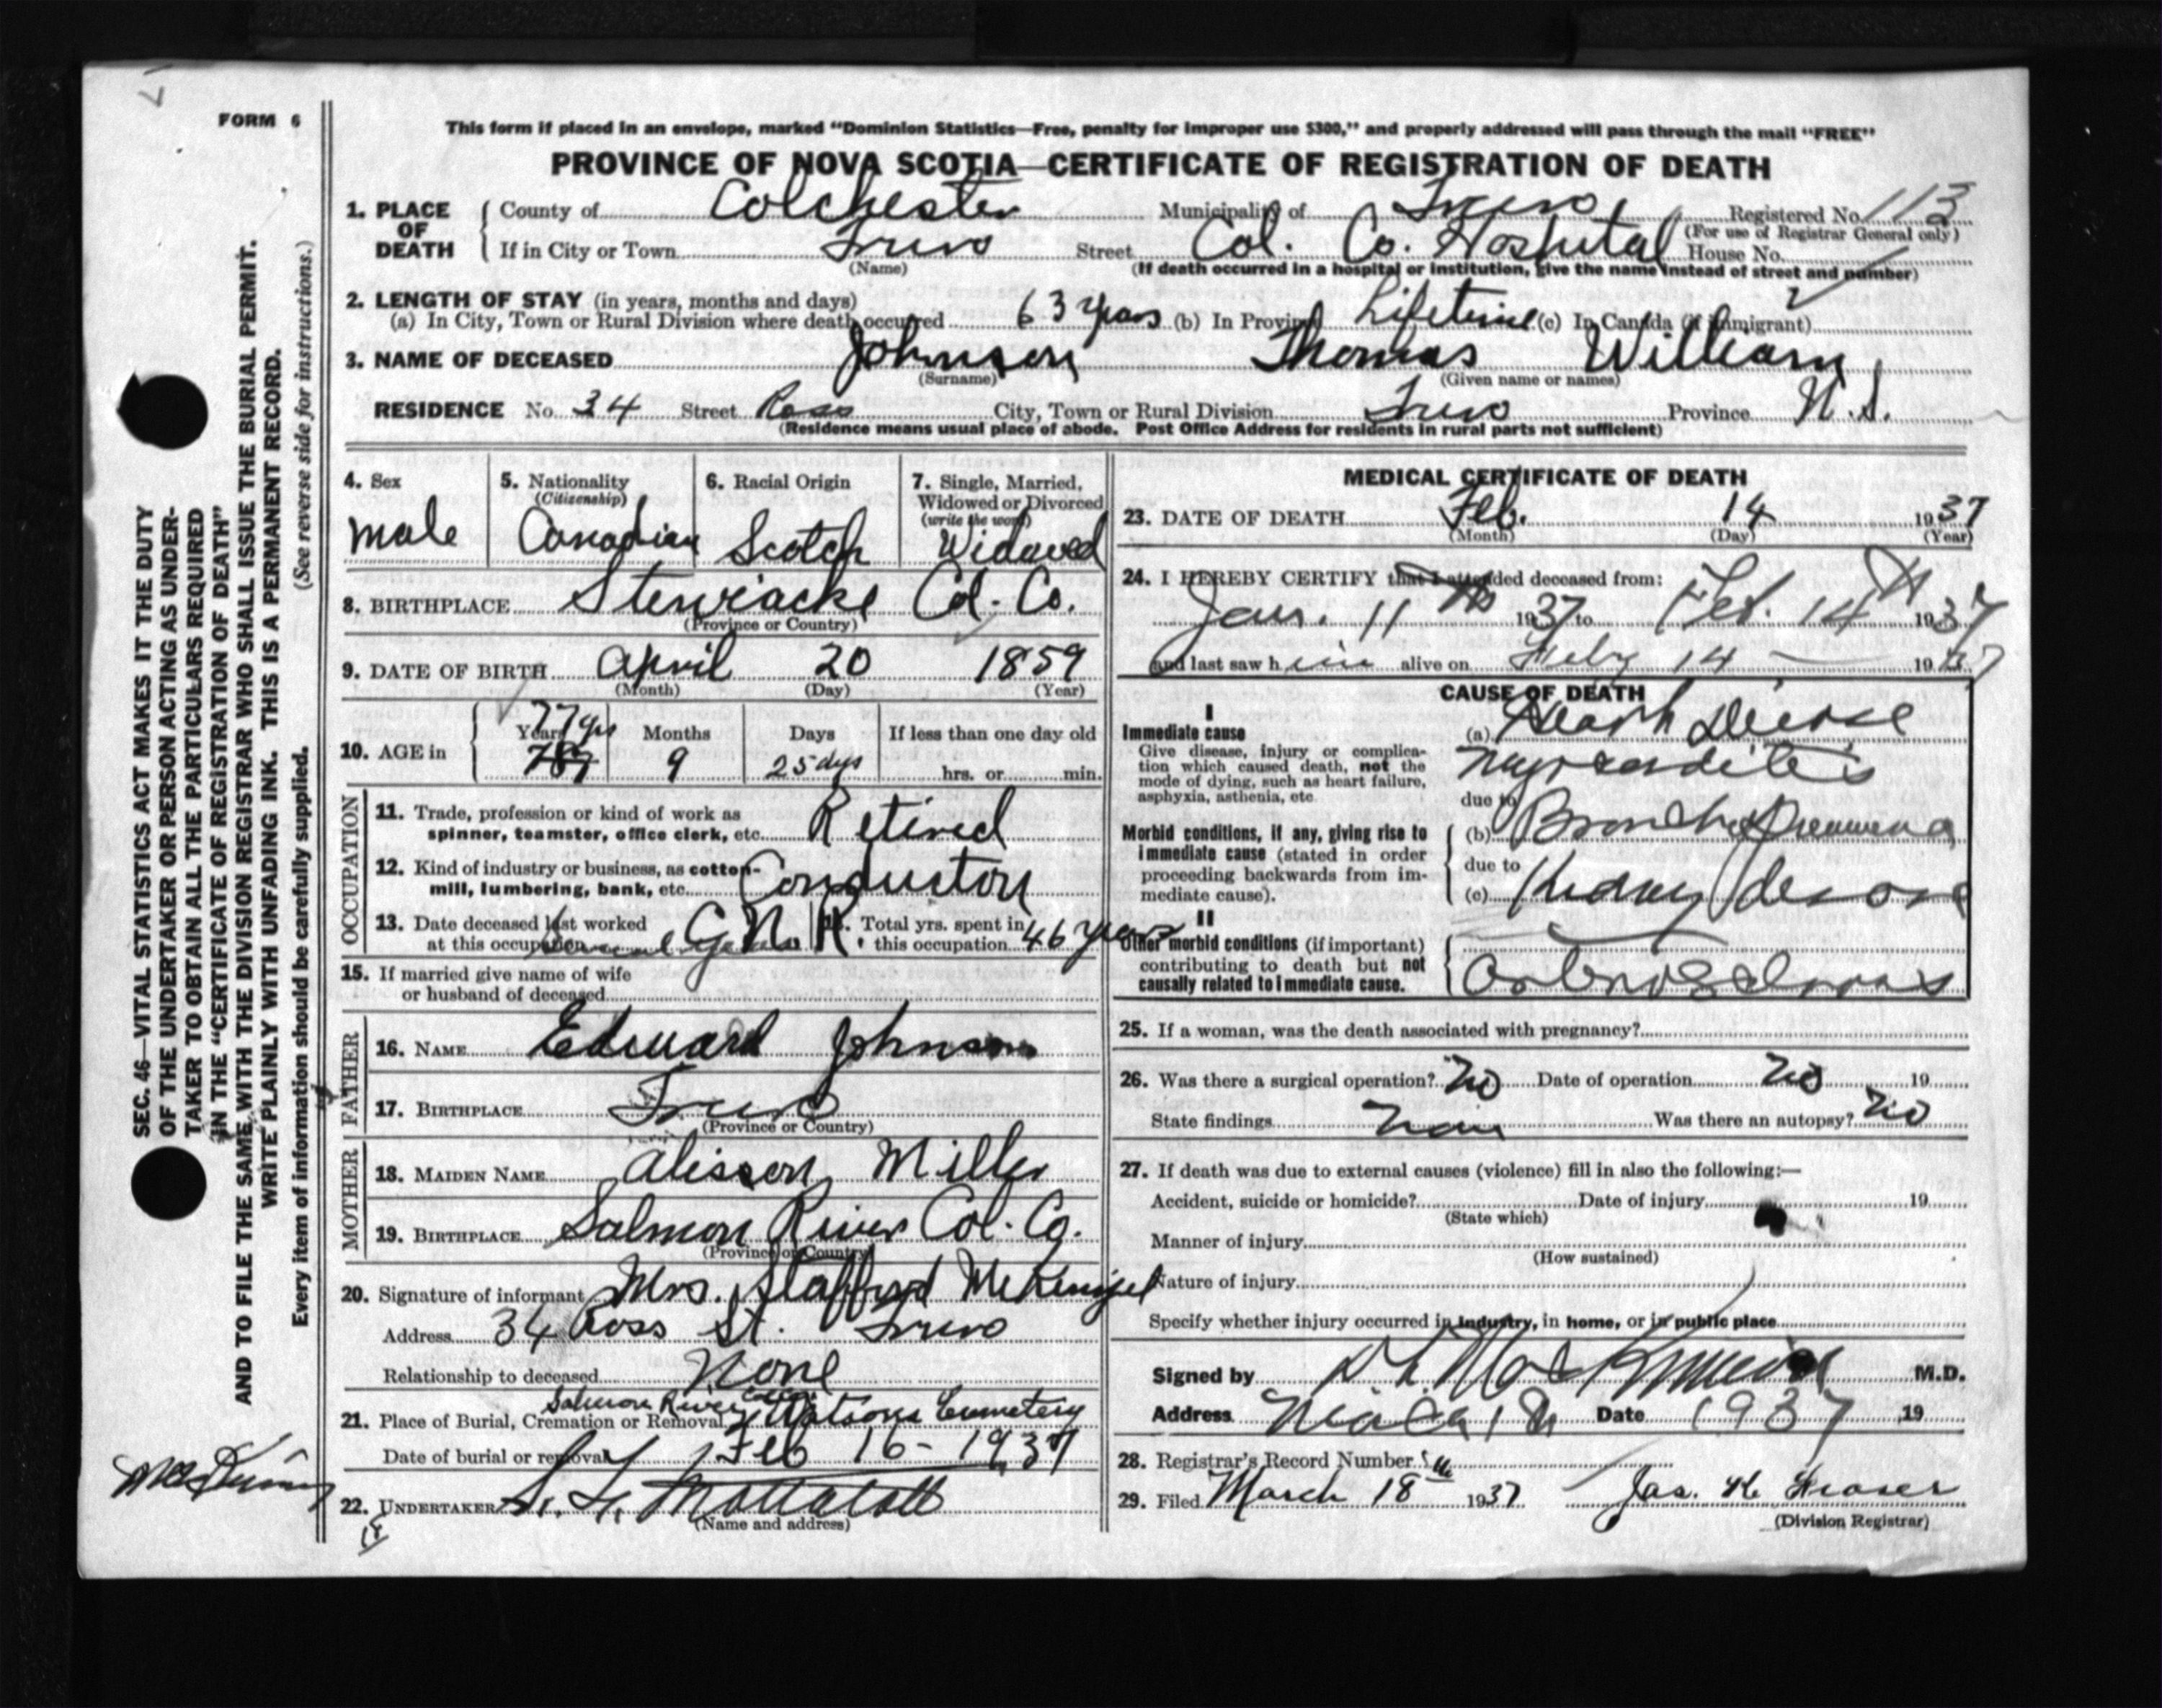 FORM 6
This form if placed in an envelope, marked "Dominion Statistics—Free, penalty for improper use $300," and properly addressed will pass through the mail "FREE"
PROVINCE OF NOVA SCOTIA—CERTIFICATE OF REGISTRATION OF DEATH
1. PLACE OF DEATH County of Colchester Municipality of Truro Registered No. 113
(For use of Registrar General only)
If in City or Town Truro Street Col. Co. Hospital House No.
(Name) (If death occurred in a hospital or institution, give the name instead of street and number)
2. LENGTH OF STAY (in years, months and days)
(a) In City, Town or Rural Division where death occurred 63 years (b) In Province Lifetime (c) In Canada (if immigrant)
3. NAME OF DECEASED Johnson Thomas William
(Surname) (Given name or names)
RESIDENCE No. 34 Street Ross City, Town or Rural Division Truro Province N.S.
(Residence means usual place of abode. Post Office Address for residents in rural parts not sufficient)
4. Sex 5. Nationality 6. Racial Origin 7. Single, Married,
(Citizenship) Widowed or Divorced
(write the word)
male Canadian Scotch Widowed
8. BIRTHPLACE Stewiacke Col. Co.
(Province or Country)
9. DATE OF BIRTH April 20 1859
(Month) (Day) (Year)
77 yrs
Years Months Days If less than one day old
10. AGE in 9 25 dys hrs. or min.
OCCUPATION
11. Trade, profession or kind of work as
spinner, teamster, office clerk, etc. Retired
12. Kind of industry or business, as cotton-
mill, lumbering, bank, etc. Conductor
13. Date deceased last worked
at this occupation C.N.R. 14. Total yrs. spent in
this occupation 46 years
15. If married give name of wife
or husband of deceased
FATHER
16. NAME Edward Johnson
17. BIRTHPLACE Truro
(Province or Country)
MOTHER
18. MAIDEN NAME Alisson Miller
19. BIRTHPLACE Salmon River Col. Co.
(Province or Country)
20. Signature of informant Mrs. Stafford
Address 34 Ross St. Truro
Relationship to deceased None
Salmon River
21. Place of Burial, Cremation or Removal Cemetery
Date of burial or removal Feb 16 - 1937
22. UNDERTAKER
(Name and address)
MEDICAL CERTIFICATE OF DEATH
23. DATE OF DEATH Feb. 14 1937
(Month) (Day) (Year)
24. I HEREBY CERTIFY that I attended deceased from:
Jan. 11 th 1937 to Feb. 14 th 1937
and last saw him alive on Feby 14 1937
CAUSE OF DEATH
I
Immediate cause
Give disease, injury or complica-
tion which caused death, not the
mode of dying, such as heart failure,
asphyxia, asthenia, etc
(a) Heart Disease
Myocarditis
due to
Morbid conditions, if any, giving rise to
immediate cause (stated in order
proceeding backwards from im-
mediate cause).
(b) Broncho Pneumonia
due to
(c) Kidney disease
II
Other morbid conditions (if important)
contributing to death but not
causally related to immediate cause.
25. If a woman, was the death associated with pregnancy?
26. Was there a surgical operation? No Date of operation No 19
State findings Was there an autopsy? No
27. If death was due to external causes (violence) fill in also the following:—
Accident, suicide or homicide? Date of injury 19
(State which)
Manner of injury
(How sustained)
Nature of injury
Specify whether injury occurred in industry, in home, or in public place
Signed by M.D.
Address Date 1937 19
28. Registrar's Record Number
29. Filed March 18th 1937 Jas. Fraser
(Division Registrar)
SEC. 46—VITAL STATISTICS ACT MAKES IT THE DUTY
OF THE UNDERTAKER OR PERSON ACTING AS UNDER-
TAKER TO OBTAIN ALL THE PARTICULARS REQUIRED
IN THE "CERTIFICATE OF REGISTRATION OF DEATH"
AND TO FILE THE SAME WITH THE DIVISION REGISTRAR WHO SHALL ISSUE THE BURIAL PERMIT.
WRITE PLAINLY WITH UNFADING INK. THIS IS A PERMANENT RECORD.
Every item of information should be carefully supplied. (See reverse side for instructions.)